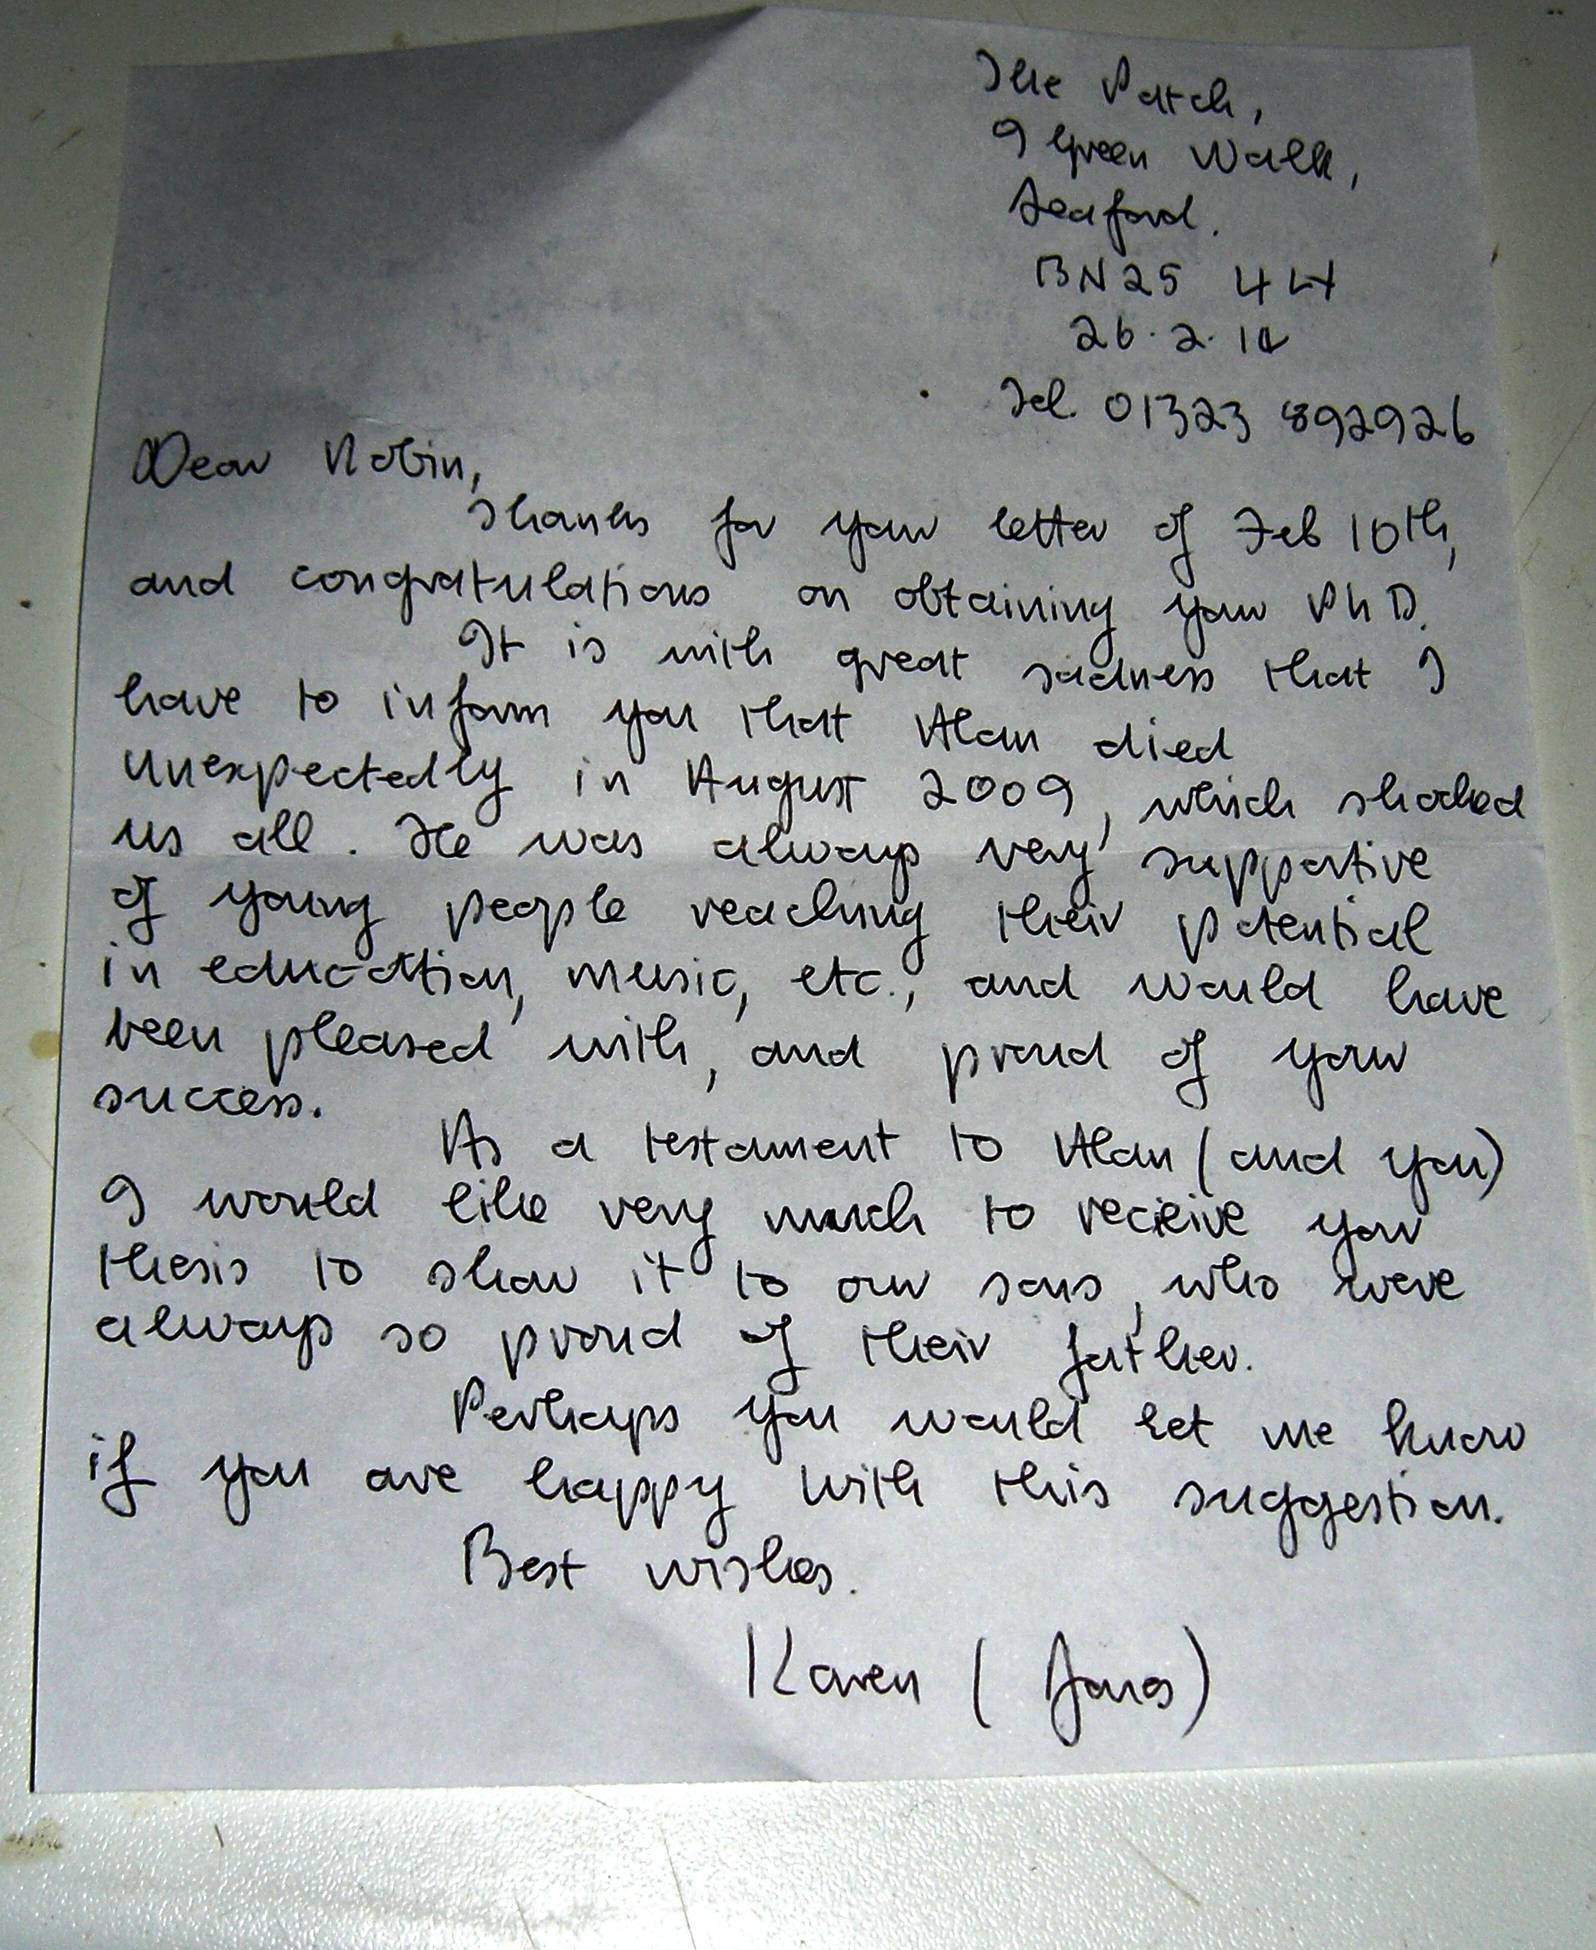 The Patch,
9 Green Walk,
Seaford.
BN25 4LH
26.2.14
Tel. 01323 892926
Dear Robin,
Thanks for your letter of Feb 10th,
and congratulations on obtaining your PhD.
It is with great sadness that I
have to inform you that Alan died
unexpectedly in August 2009, which shocked
us all. He was always very supportive
of young people reaching their potential
in education, music, etc., and would have
been pleased with, and proud of your
success.
As a testament to Alan (and you)
I would like very much to recieive your
thesis to show it to our sons, who were
always so proud of their father.
Perhaps you would let me know
if you are happy with this suggestion.
Best wishes.
Karen (Jones)